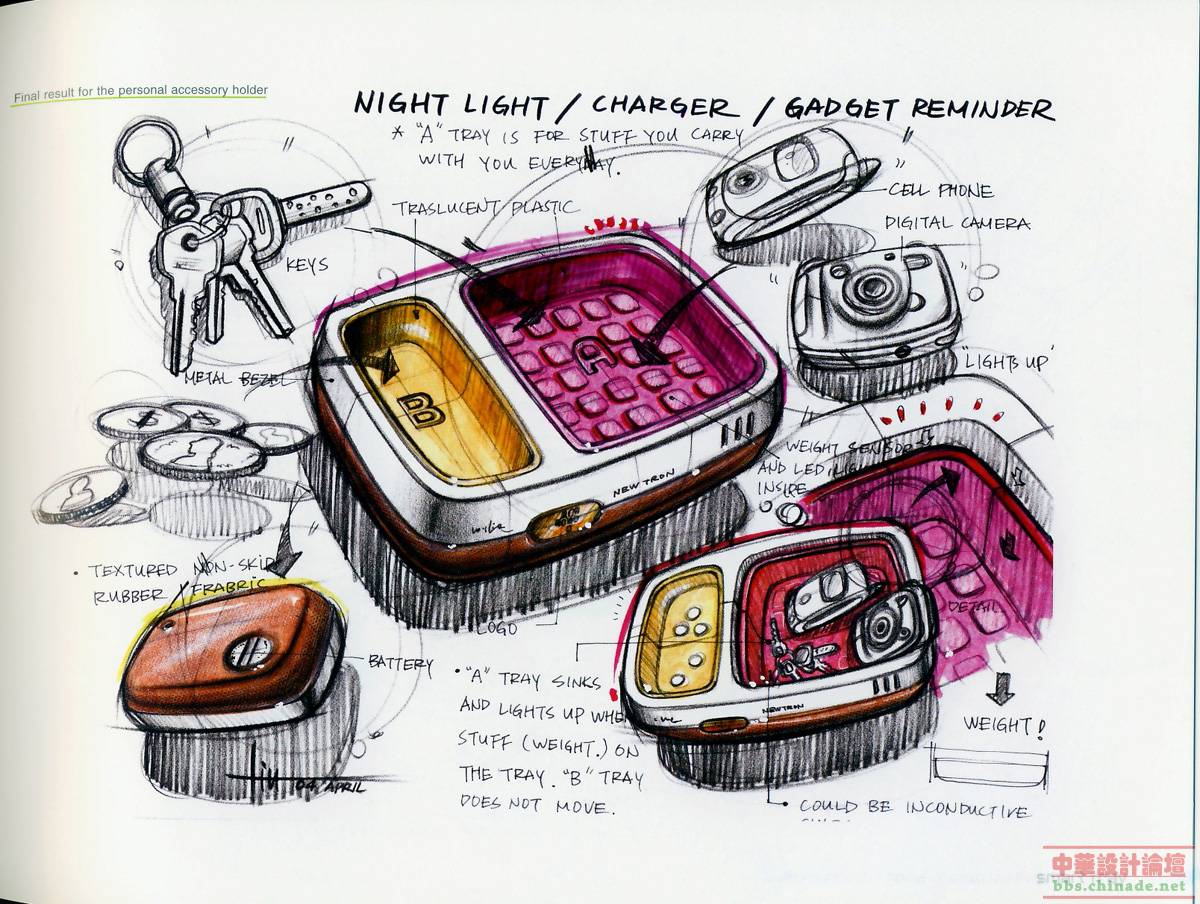 Final result for the personal accessory holder
NIGHT LIGHT / CHARGER / GADGET REMINDER
* "A" TRAY IS FOR STUFF YOU CARRY
WITH YOU EVERYDAY.
CELL PHONE
TRASLUCENT PLASTIC
DIGITAL CAMERA
KEYS
A
"LIGHTS UP"
METAL BEZEL
B
WEIGHT SENSOR
AND LED, LIG
INSIDE
NEWTRON
• TEXTURED NON-SKID
RUBBER / FRABRIC
LOGO
DETAIL
BATTERY
• "A" TRAY SINKS
AND LIGHTS UP WHEN
STUFF (WEIGHT.) ON
THE TRAY. "B" TRAY
DOES NOT MOVE.
NEWTRON
WEIGHT!
04. APRIL
• COULD BE INCONDUCTIVE
中華設計論壇
bbs.chinade.net